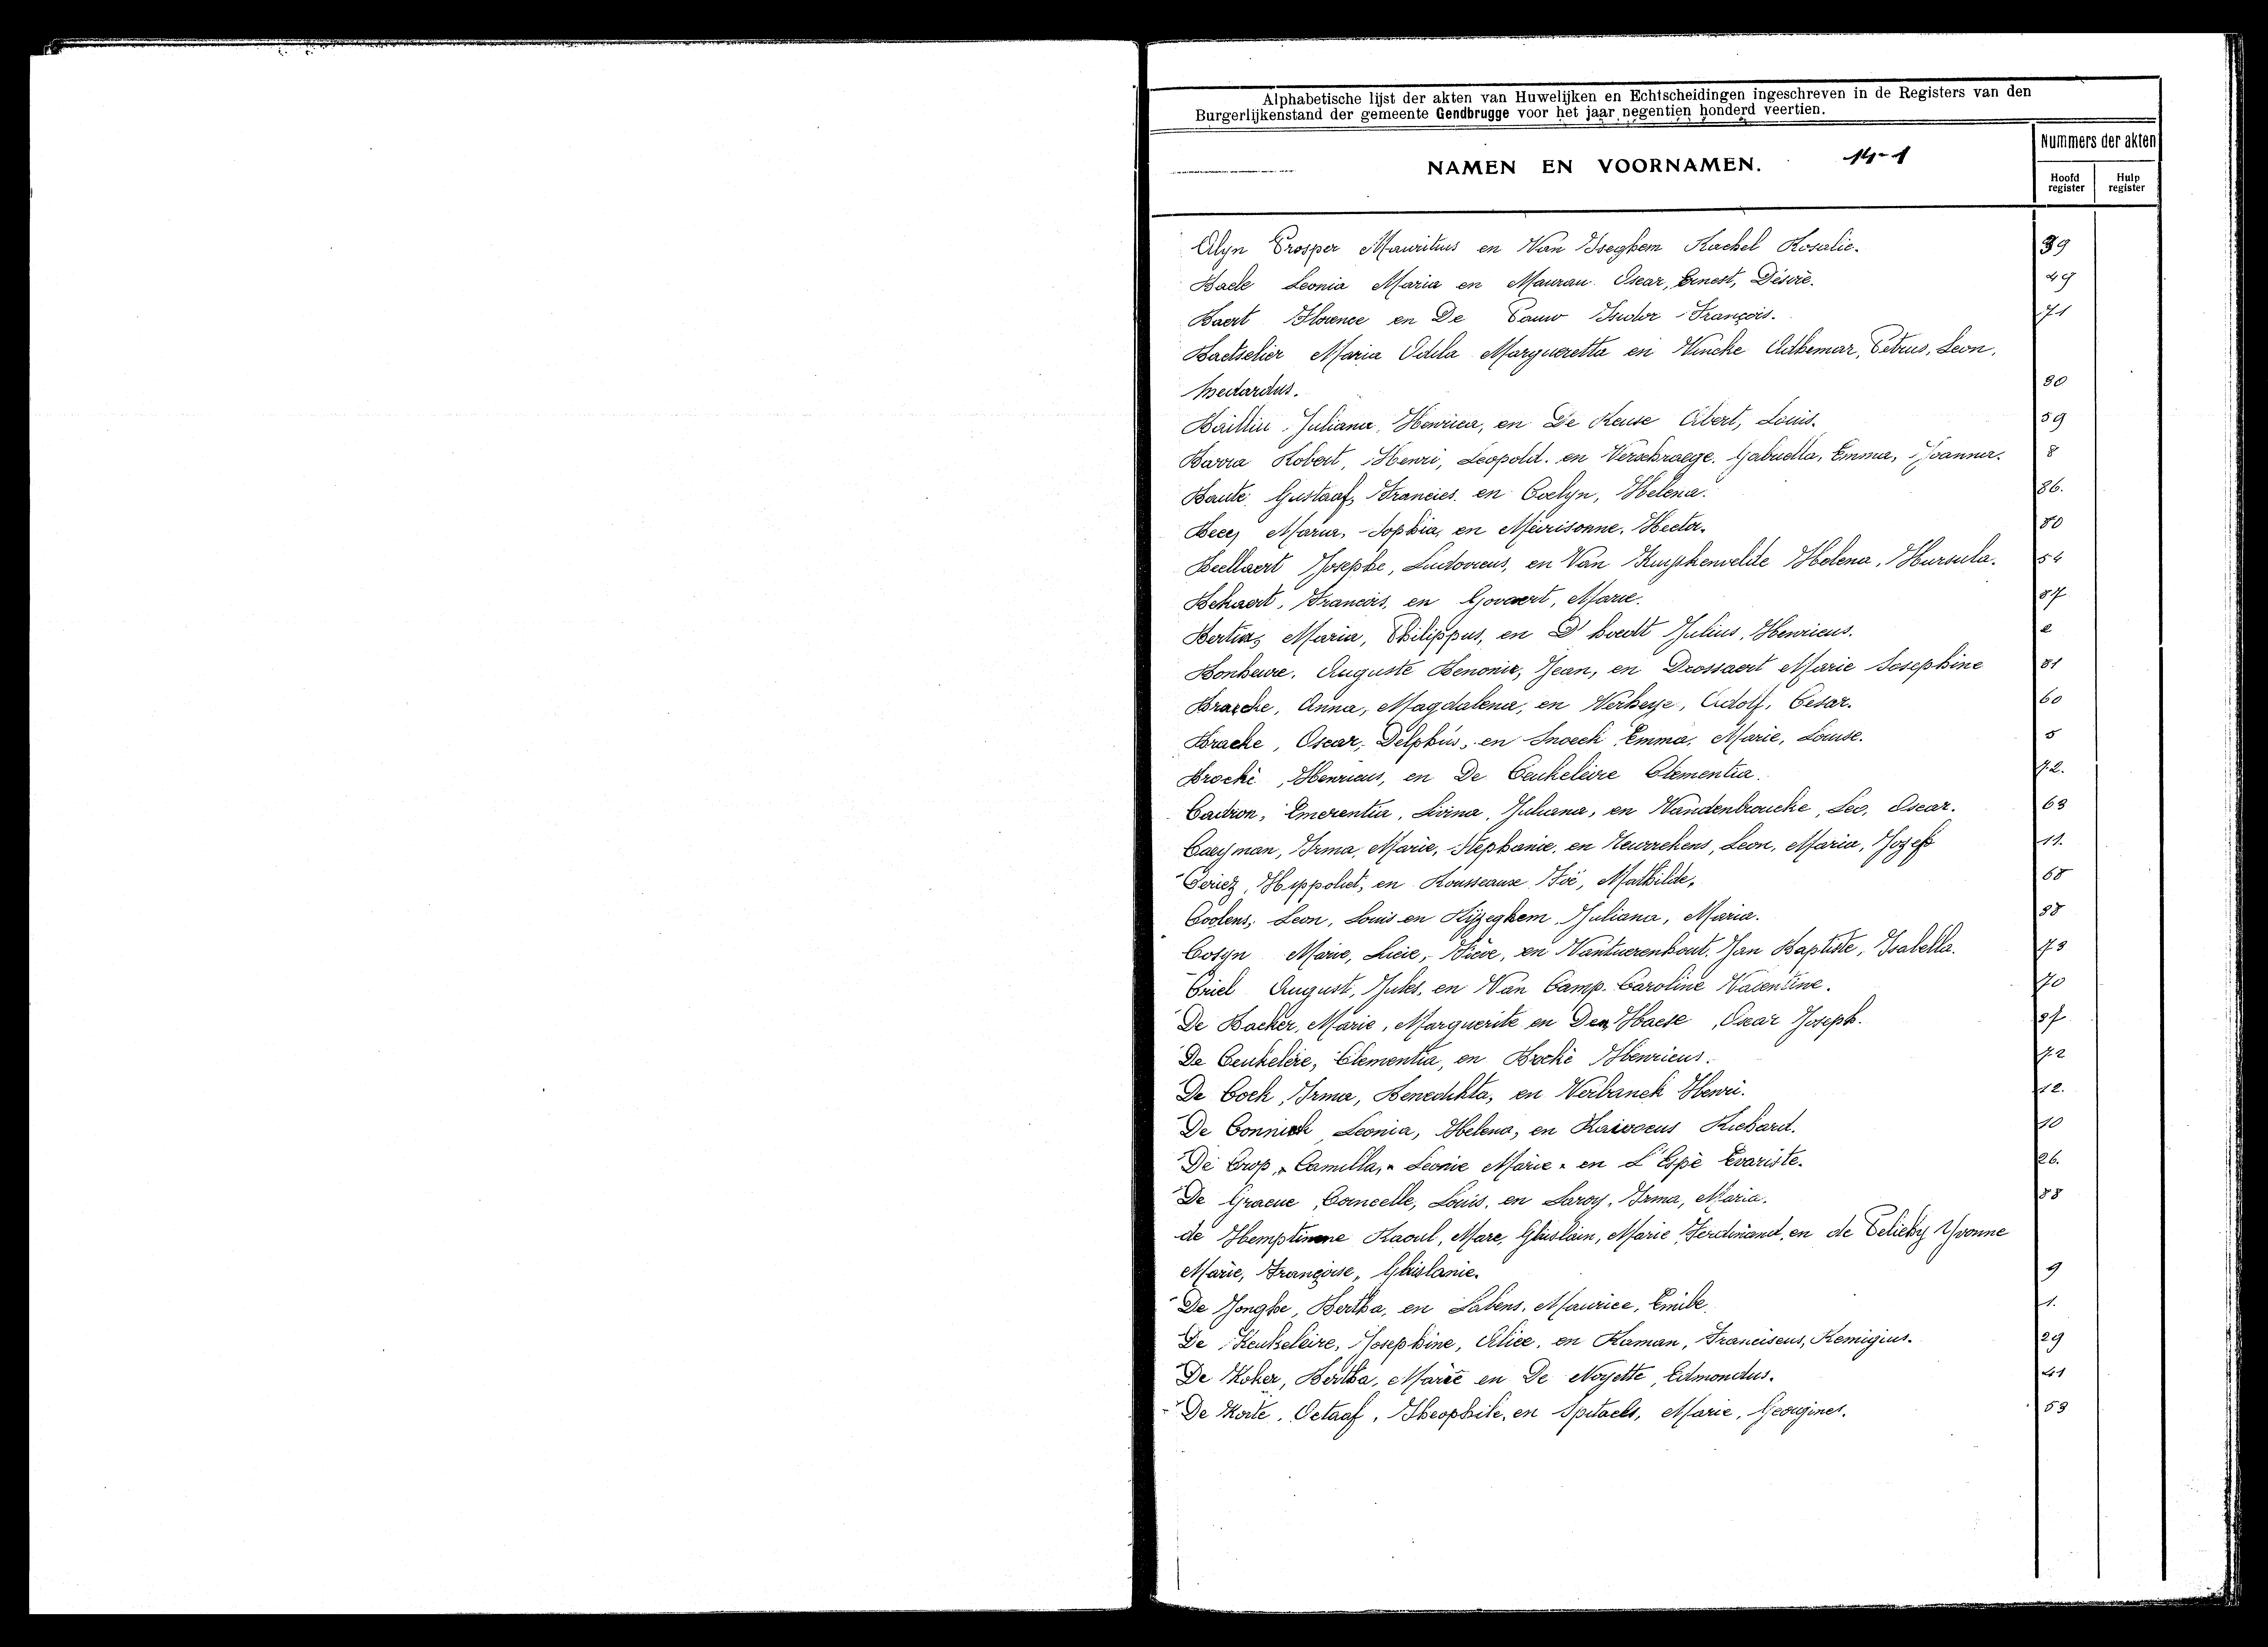 Alphabetische lijst der akten van Huwelijken en Echtscheidingen ingeschreven in de Registers van den
Burgerlijkenstand der gemeente Gendbrugge voor het jaar negentien honderd veertien.
NAMEN EN VOORNAMEN. 14-1
Nummers der akten
Hoofd register Hulp register
Alyn Prosper Mauritius en Van Iseghem Rachel Rosalie. 39
Baele Leonia Maria en Maurau Oscar, Ernest, Désiré. 49
Baert Florence en De Pauw Isidor François. 71
Baetselier Maria Odila Margueretta en Vincke Adhemar, Petrus, Leon,
Medardus. 30
Juliana, Henrica, en De Keuse Albert, Louis. 59
Barra Robert, Henri, Leopold. en Verschraege. Gabriella, Emma, Joanna. 8
Baute Gustaaf, Francies en Coelyn, Helena. 36.
Maria, Sophia, en Meirisonne, Hector. 50
Beellaert Josephe, Ludovicus, en Van Helena, Hursula. 54
Bekaert, Francois, en Govaert, Marie. 57
Maria, Philippus, en D'hoedt Julius, Henricus. 2
Bonheure, Auguste Benonie, Jean, en Drossaert Marie Josephine 51
Anna, Magdalena, en Verheye, Adolf, Cesar. 60
Brache, Oscar, Delphus, en Snoeck Emma, Marie, Louise. 5
Broché, Henricus, en De Ceukeleire Clementia. 72.
Cadron, Emerentia, Livina, Juliana, en Vandenbroucke, Leo, Oscar. 63
Caeyman, Irma, Marie, Stephanie, en Leon, Maria, Josef 11.
Hippoliet, en Rousseaux Mathilde, 65
Coolens, Leon, Louis en Rijzeghem Juliana, Maria. 35
Cosyn Marie, Lucie, en Vantuerenhout. Jan Baptiste, Isabella. 73
Criel August, Jules, en Van Camp. Caroline Valentine. 70
De Backer, Marie, Marguerite en Den Haese, Oscar Joseph. 37
De Ceukeleire, Clementia, en Broché Henricus. 72
De Cock, Irma, Benedikta, en Verbanck Henri. 12.
De Connick Leonia, Helena, en Richard. 10
De Crop, Camilla, Leonie Marie. en L'Espè Evariste. 26.
De Graeue, Louis, en Laroy, Irma, Maria. 55
de Hemptinne Raoul, Marc, Ghislain, Marie Ferdinand, en de Yvonne
Marie, Françoise, Ghislanie. 9
De Jonghe, Bertha, en Labens, Maurice, Emile. 1.
De Keukeleire, Josephine, Alice, en Raman, Franciscus, Remigius. 29
De Koker, Bertha, Marie en De Noyette, Edmondus. 41
De Korte, Octaaf, Theophile, en Spitaels, Marie, Georgines. 53